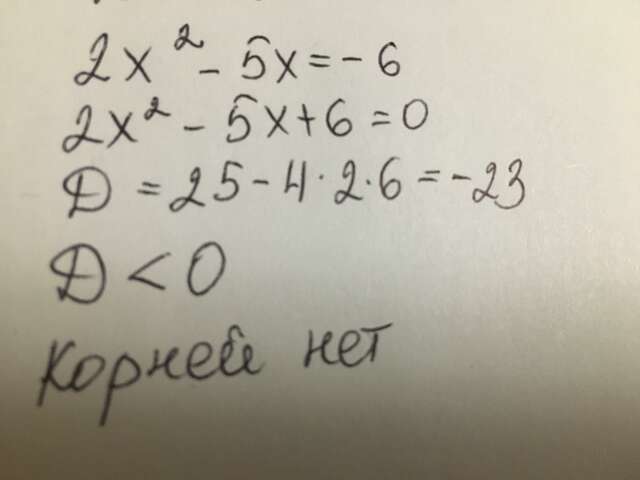 2x² - 5x = - 6
2x² - 5x + 6 = 0
D = 25 - 4 · 2 · 6 = - 23
D < 0
Корней нет